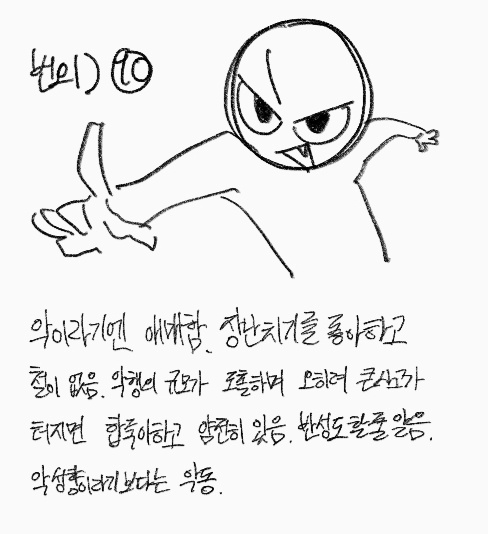 번외) 90
악이라기엔 애매함. 장난치기를 좋아하고
철이 없음. 악행의 규모가 조촐하며 오히려 큰사고가
터지면 합죽이하고 얌전히 있음. 반성도할줄앎음.
악성향이라기보다는 악동.